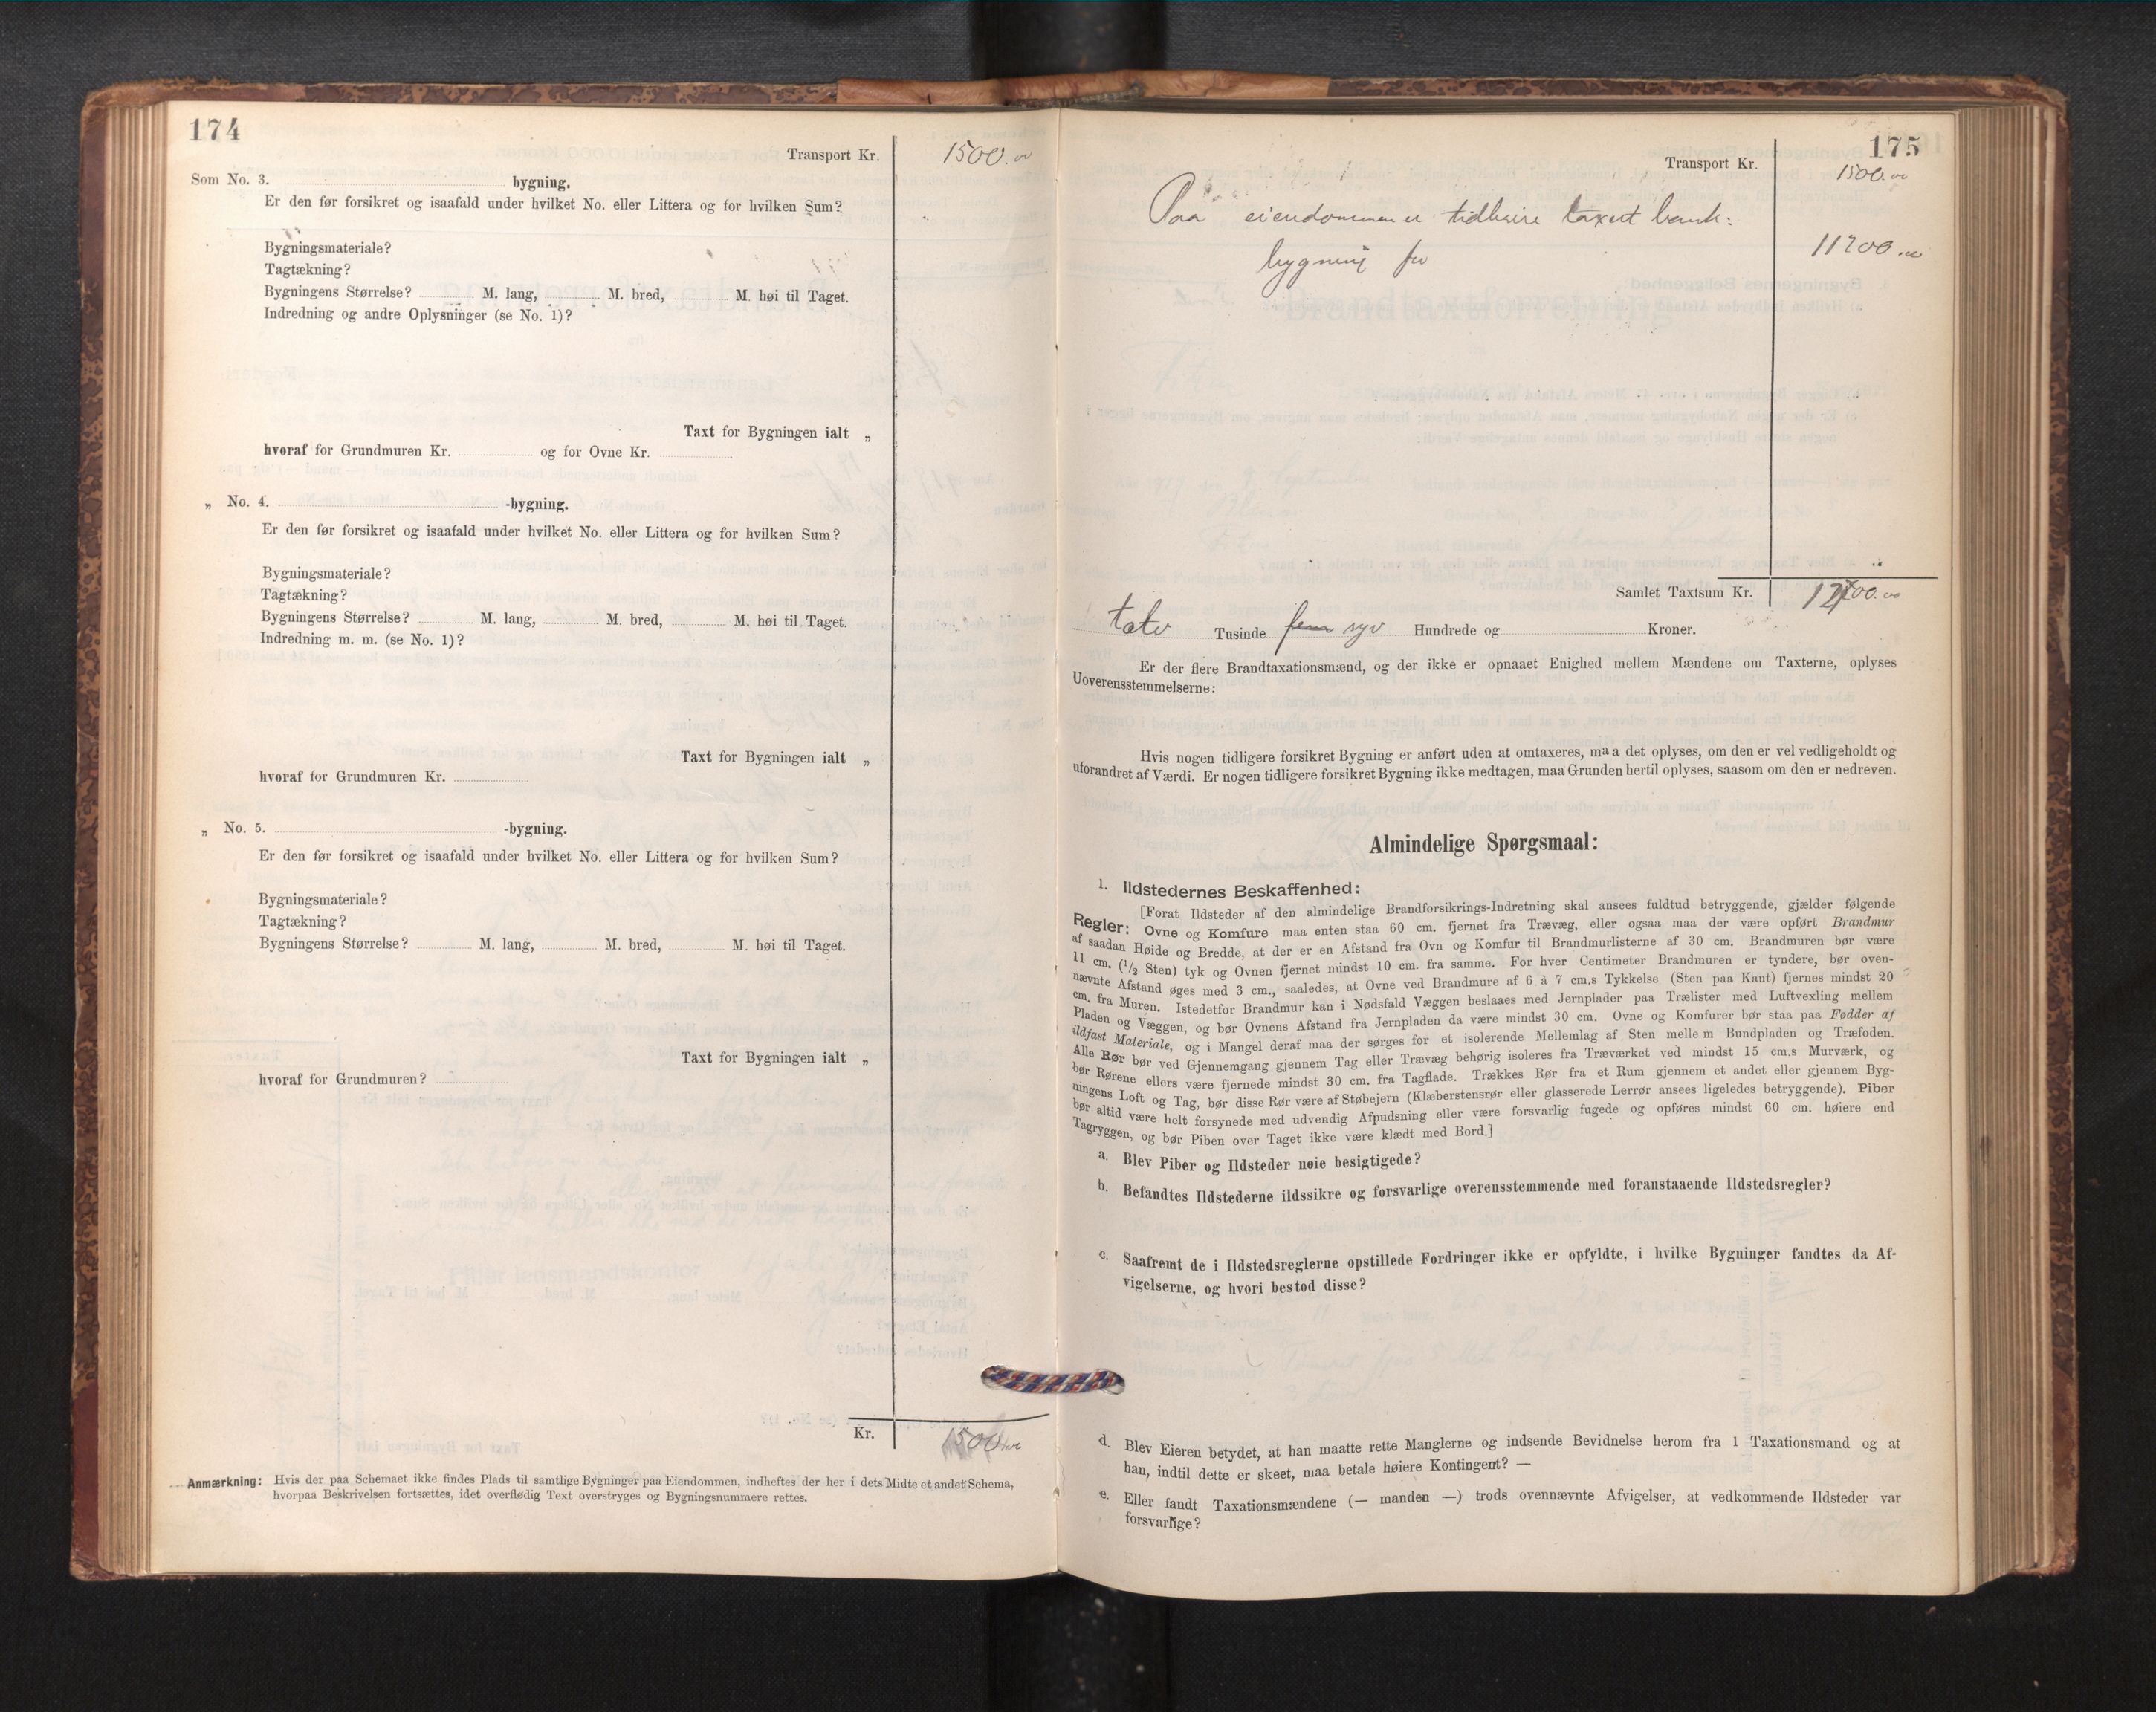 174
Transport Kr. 1500.00
Som No. 3. bygning.
Er den før forsikret og isaafald under hvilket No. eller Littera og for hvilken Sum?
Bygningsmateriale?
Tagtækning?
Bygningens Størrelse? M. lang, M. bred, M. høi til Taget.
Indredning og andre Oplysninger (se No. 1)?
Taxt for Bygningen ialt „
hvoraf for Grundmuren Kr. og for Ovne Kr.
„ No. 4. -bygning.
Er den før forsikret og isaafald under hvilket No. eller Littera og for hvilken Sum?
Bygningsmateriale?
Tagtækning?
Bygningens Størrelse? M. lang, M. bred, M. høi til Taget.
Indredning m. m. (se No. 1)?
Taxt for Bygningen ialt „
hvoraf for Grundmuren Kr.
„ No. 5. -bygning.
Er den før forsikret og isaafald under hvilket No. eller Littera og for hvilken Sum?
Bygningsmateriale?
Tagtækning?
Bygningens Størrelse? M. lang, M. bred, M. høi til Taget.
Taxt for Bygningen ialt „
hvoraf for Grundmuren?
Kr. 1500.00
Anmærkning: Hvis der paa Schemaet ikke findes Plads til samtlige Bygninger paa Eiendommen, indheftes der her i dets Midte et andet Schema,
hvorpaa Beskrivelsen fortsættes, idet overflødig Text overstryges og Bygningsnummere rettes.
175
Transport Kr. 1500.00
Paa eiendommen er tidligere taxert
bygning for 11200.00
Samlet Taxtsum Kr. 12700.00
tolv Tusinde fem syv Hundrede og Kroner.
Er der flere Brandtaxationsmænd, og der ikke er opnaaet Enighed mellem Mændene om Taxterne, oplyses
Uoverensstemmelserne:
Hvis nogen tidligere forsikret Bygning er anført uden at omtaxeres, maa det oplyses, om den er vel vedligeholdt og
uforandret af Værdi. Er nogen tidligere forsikret Bygning ikke medtagen, maa Grunden hertil oplyses, saasom om den er nedreven.
Almindelige Spørgsmaal:
1. Ildstedernes Beskaffenhed:
[Forat Ildsteder af den almindelige Brandforsikrings-Indretning skal ansees fuldtud betryggende, gjælder følgende
Regler: Ovne og Komfure maa enten staa 60 cm. fjernet fra Trævæg, eller ogsaa maa der være opført Brandmur
af saadan Høide og Bredde, at der er en Afstand fra Ovn og Komfur til Brandmurlisterne af 30 cm. Brandmuren bør være
11 cm. (1/2 Sten) tyk og Ovnen fjernet mindst 10 cm. fra samme. For hver Centimeter Brandmuren er tyndere, bør oven-
nævnte Afstand øges med 3 cm., saaledes, at Ovne ved Brandmure af 6 à 7 cm.s Tykkelse (Sten paa Kant) fjernes mindst 20
cm. fra Muren. Istedetfor Brandmur kan i Nødsfald Væggen beslaaes med Jernplader paa Trælister med Luftvexling mellem
Pladen og Væggen, og bør Ovnens Afstand fra Jernpladen da være mindst 30 cm. Ovne og Komfurer bør staa paa Fødder af
ildfast Materiale, og i Mangel deraf maa der sørges for et isolerende Mellemlag af Sten mellem Bundpladen og Træfoden.
Alle Rør bør ved Gjennemgang gjennem Tag eller Trævæg behørig isoleres fra Træværket ved mindst 15 cm.s Murværk, og
bør Rørene ellers være fjernede mindst 30 cm. fra Tagflade. Trækkes Rør fra et Rum gjennem et andet eller gjennem Byg-
ningens Loft og Tag, bør disse Rør være af Støbejern (Klæberstensrør eller glasserede Lerrør ansees ligeledes betryggende). Piber
bør altid være helt forsynede med udvendig Afpudsning eller være forsvarlig fugede og opføres mindst 60 cm. høiere end
Tagryggen, og bør Piben over Taget ikke være klædt med Bord.]
a. Blev Piber og Ildsteder nøie besigtigede?
b. Befandtes Ildstederne ildssikre og forsvarlige overensstemmende med foranstaaende Ildstedsregler?
c. Saafremt de i Ildstedsreglerne opstillede Fordringer ikke er opfyldte, i hvilke Bygninger fandtes da Af-
vigelserne, og hvori bestod disse?
d. Blev Eieren betydet, at han maatte rette Manglerne og indsende Bevidnelse herom fra 1 Taxationsmand og at
han, indtil dette er skeet, maa betale høiere Kontingent? —
e. Eller fandt Taxationsmændene (— manden —) trods ovennævnte Afvigelser, at vedkommende Ildsteder var
forsvarlige?